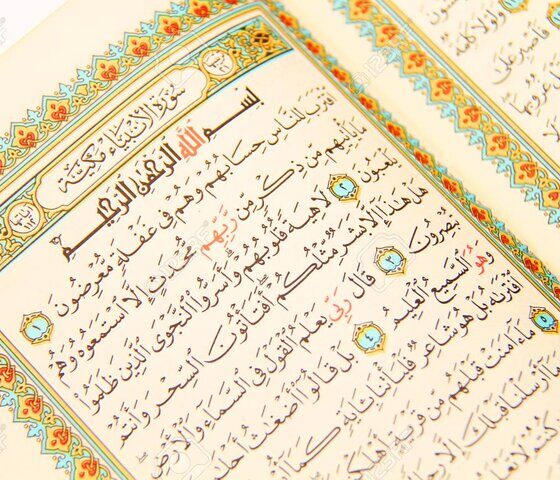 سُورَةُ الْأَنْبِيَاءِ مَكِّيَّة
بِسْمِ اللَّهِ الرَّحْمَٰنِ الرَّحِيمِ
ٱقْتَرَبَ لِلنَّاسِ حِسَابُهُمْ وَهُمْ فِى غَفْلَةٍ مُّعْرِضُونَ ١
مَا يَأْتِيهِم مِّن ذِكْرٍ مِّن رَّبِّهِم مُّحْدَثٍ إِلَّا ٱسْتَمَعُوهُ وَهُمْ
يَلْعَبُونَ ٢ لَاهِيَةً قُلُوبُهُمْ وَأَسَرُّوا۟ ٱلنَّجْوَى ٱلَّذِينَ ظَلَمُوا۟
هَلْ هَٰذَآ إِلَّا بَشَرٌ مِّثْلُكُمْ أَفَتَأْتُونَ ٱلسِّحْرَ وَأَنتُمْ
تُبْصِرُونَ ٣ قَالَ رَبِّى يَعْلَمُ ٱلْقَوْلَ فِى ٱلسَّمَآءِ وَٱلْأَرْضِ
وَهُوَ ٱلسَّمِيعُ ٱلْعَلِيمُ ٤ بَلْ قَالُوٓا۟ أَضْغَٰثُ
ٱفْتَرَىٰهُ بَلْ هُوَ شَاعِرٌ فَلْيَأْتِنَا بِـَٔايَةٍ كَمَآ
٥ مَآ ءَامَنَتْ قَبْلَهُم مِّن قَرْيَةٍ
وَمَآ أَرْسَلْنَا قَبْلَكَ إِلَّا